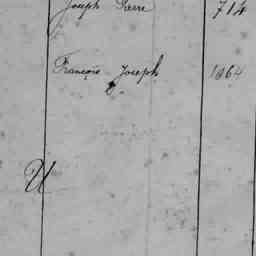 Joseph Pierre 714
François Joseph 1064
U